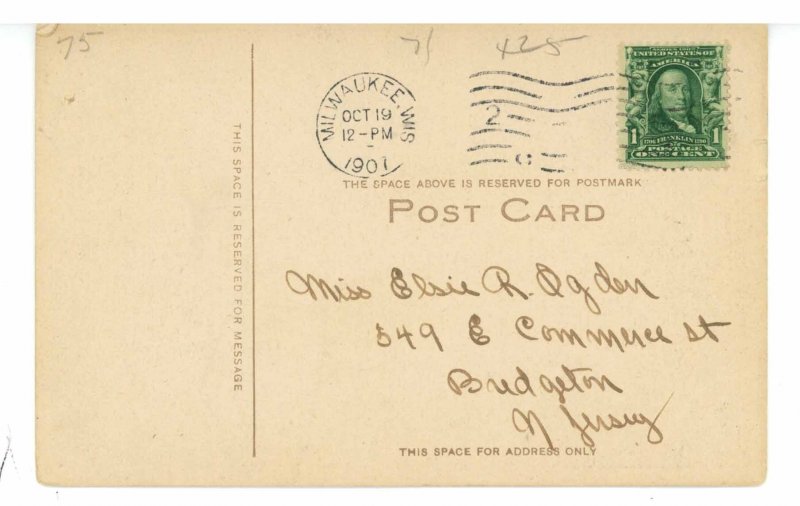 75
71
425
MILWAUKEE, WIS
OCT 19
12-PM
1907
2
SERIES 1902
UNITED STATES OF
AMERICA
1 1
1706 FRANKLIN 1790
POSTAGE
ONE CENT
THE SPACE ABOVE IS RESERVED FOR POSTMARK
POST CARD
THIS SPACE IS RESERVED FOR MESSAGE
Miss Elsie R. Ogden
549 E Commerce st
Bridgeton
N Jersey
THIS SPACE FOR ADDRESS ONLY